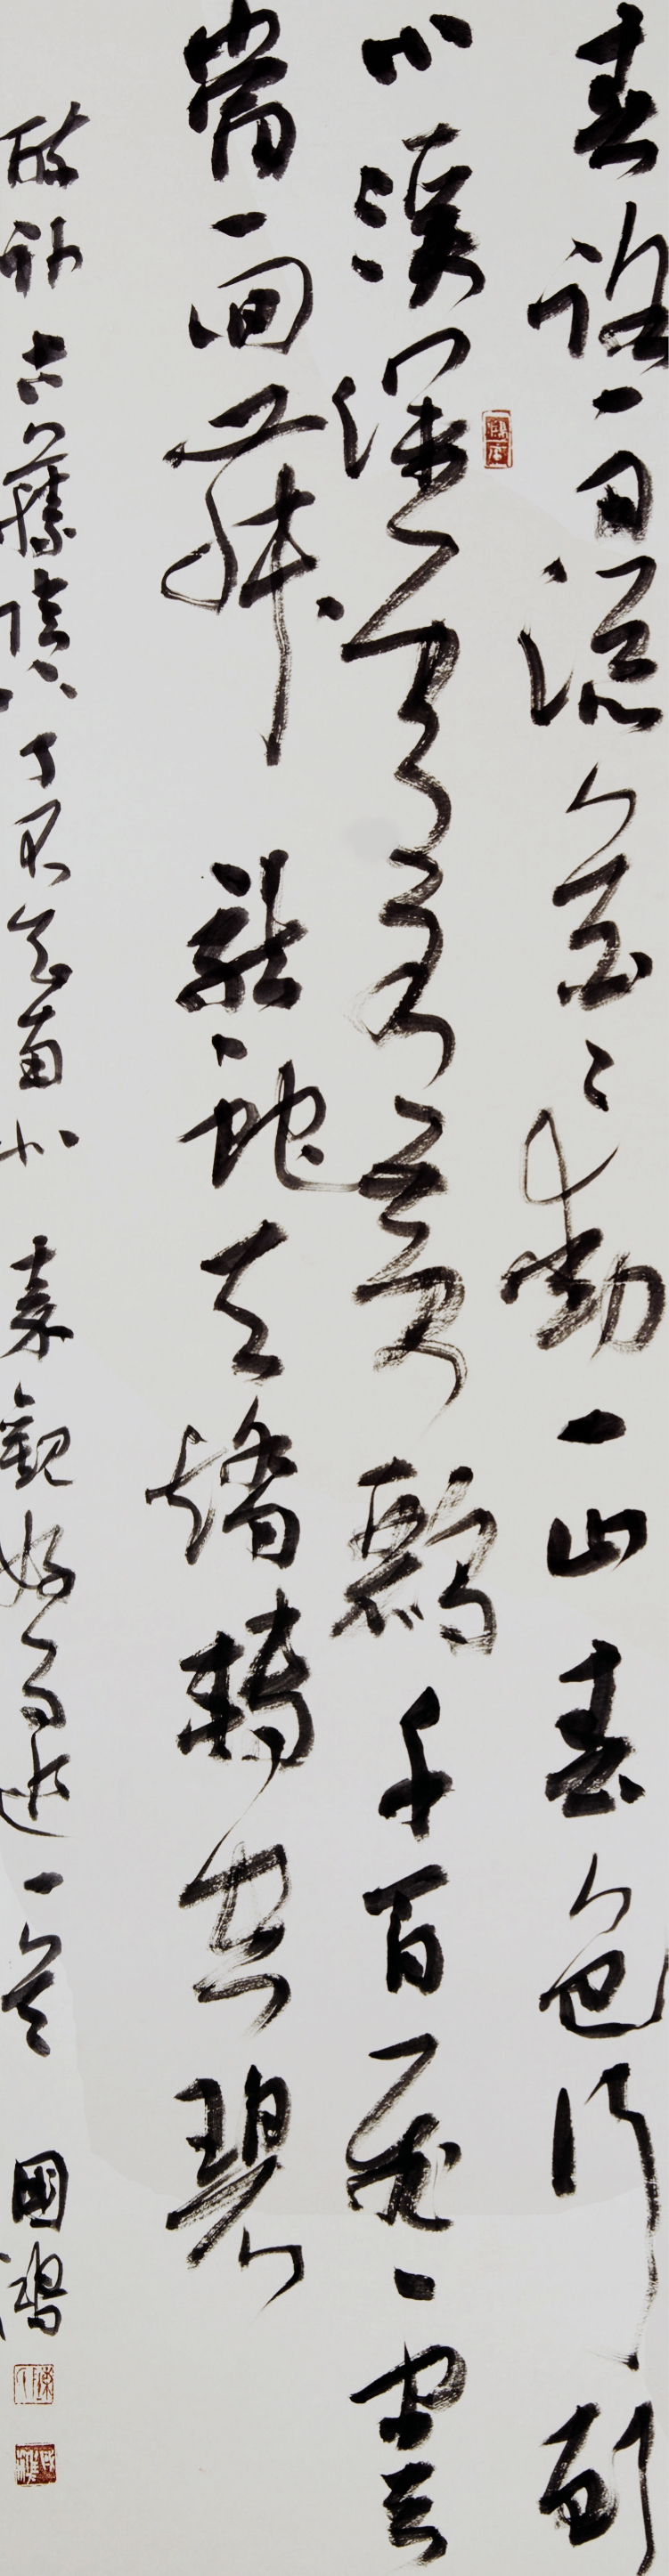 春路雨添花〻動一山春色行到
小溪深處有黃鸝千百飛雲
當面舞龍蛇夭矯轉空碧
醉卧古藤陰下了不知南北 秦觀好事近一首 國鴻